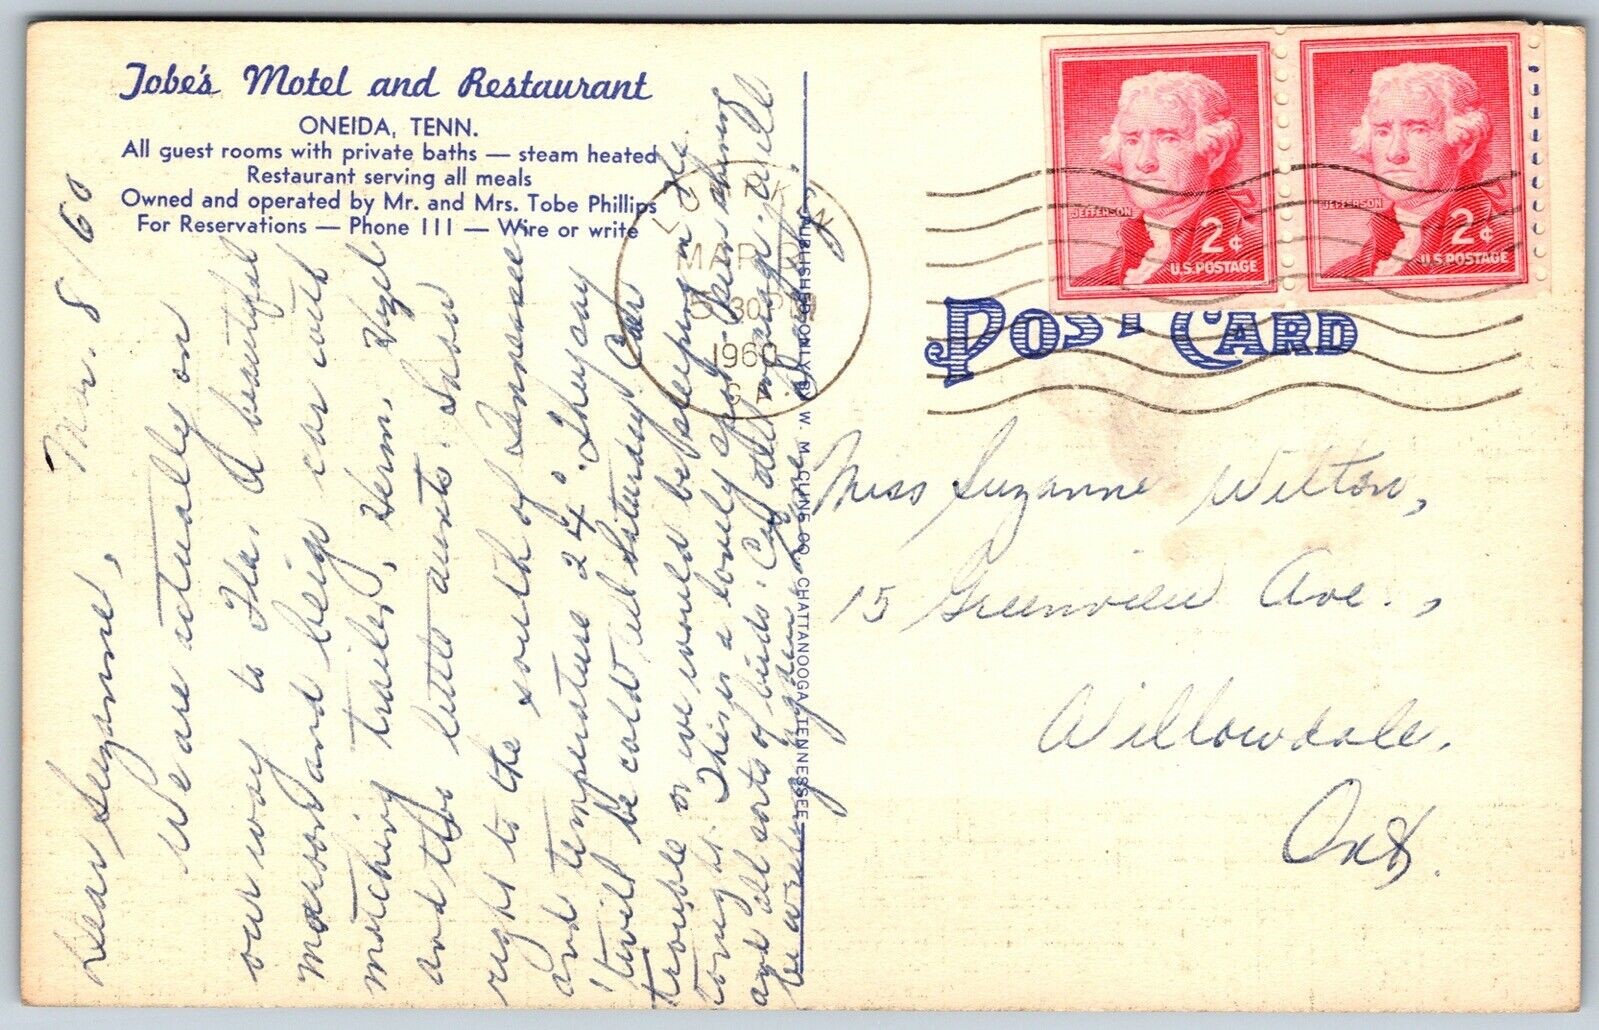 Tobe's Motel and Restaurant
ONEIDA, TENN.
All guest rooms with private baths — steam heated
Restaurant serving all meals
Owned and operated by Mr. and Mrs. Tobe Phillips
For Reservations — Phone 111 — Wire or write
Mar. 8/60
Dear Suzanne,
We are actually on
our way to Fla. A beautiful
maroon and beige car with
matching trailer, Herm, Hazel
and the little aunts. Snow
right to the south of Tennessee
and temperature 24°. They say
'twill be cold til Saturday. Car
trouble or we would be sleeping in the
tonight. This is a lovely spot - sun shining
and all sorts of birds. Can get mail
be at
MAR 8
5 30 PM
1960
GA
PUBLISHED ONLY BY W. M. CLINE CO., CHATTANOOGA, TENNESSEE
JEFFERSON
2¢
U.S. POSTAGE
JEFFERSON
2¢
U.S. POSTAGE
POST CARD
Miss Suzanne Wilton,
15 Greenview Ave.,
Willowdale.
Ont.